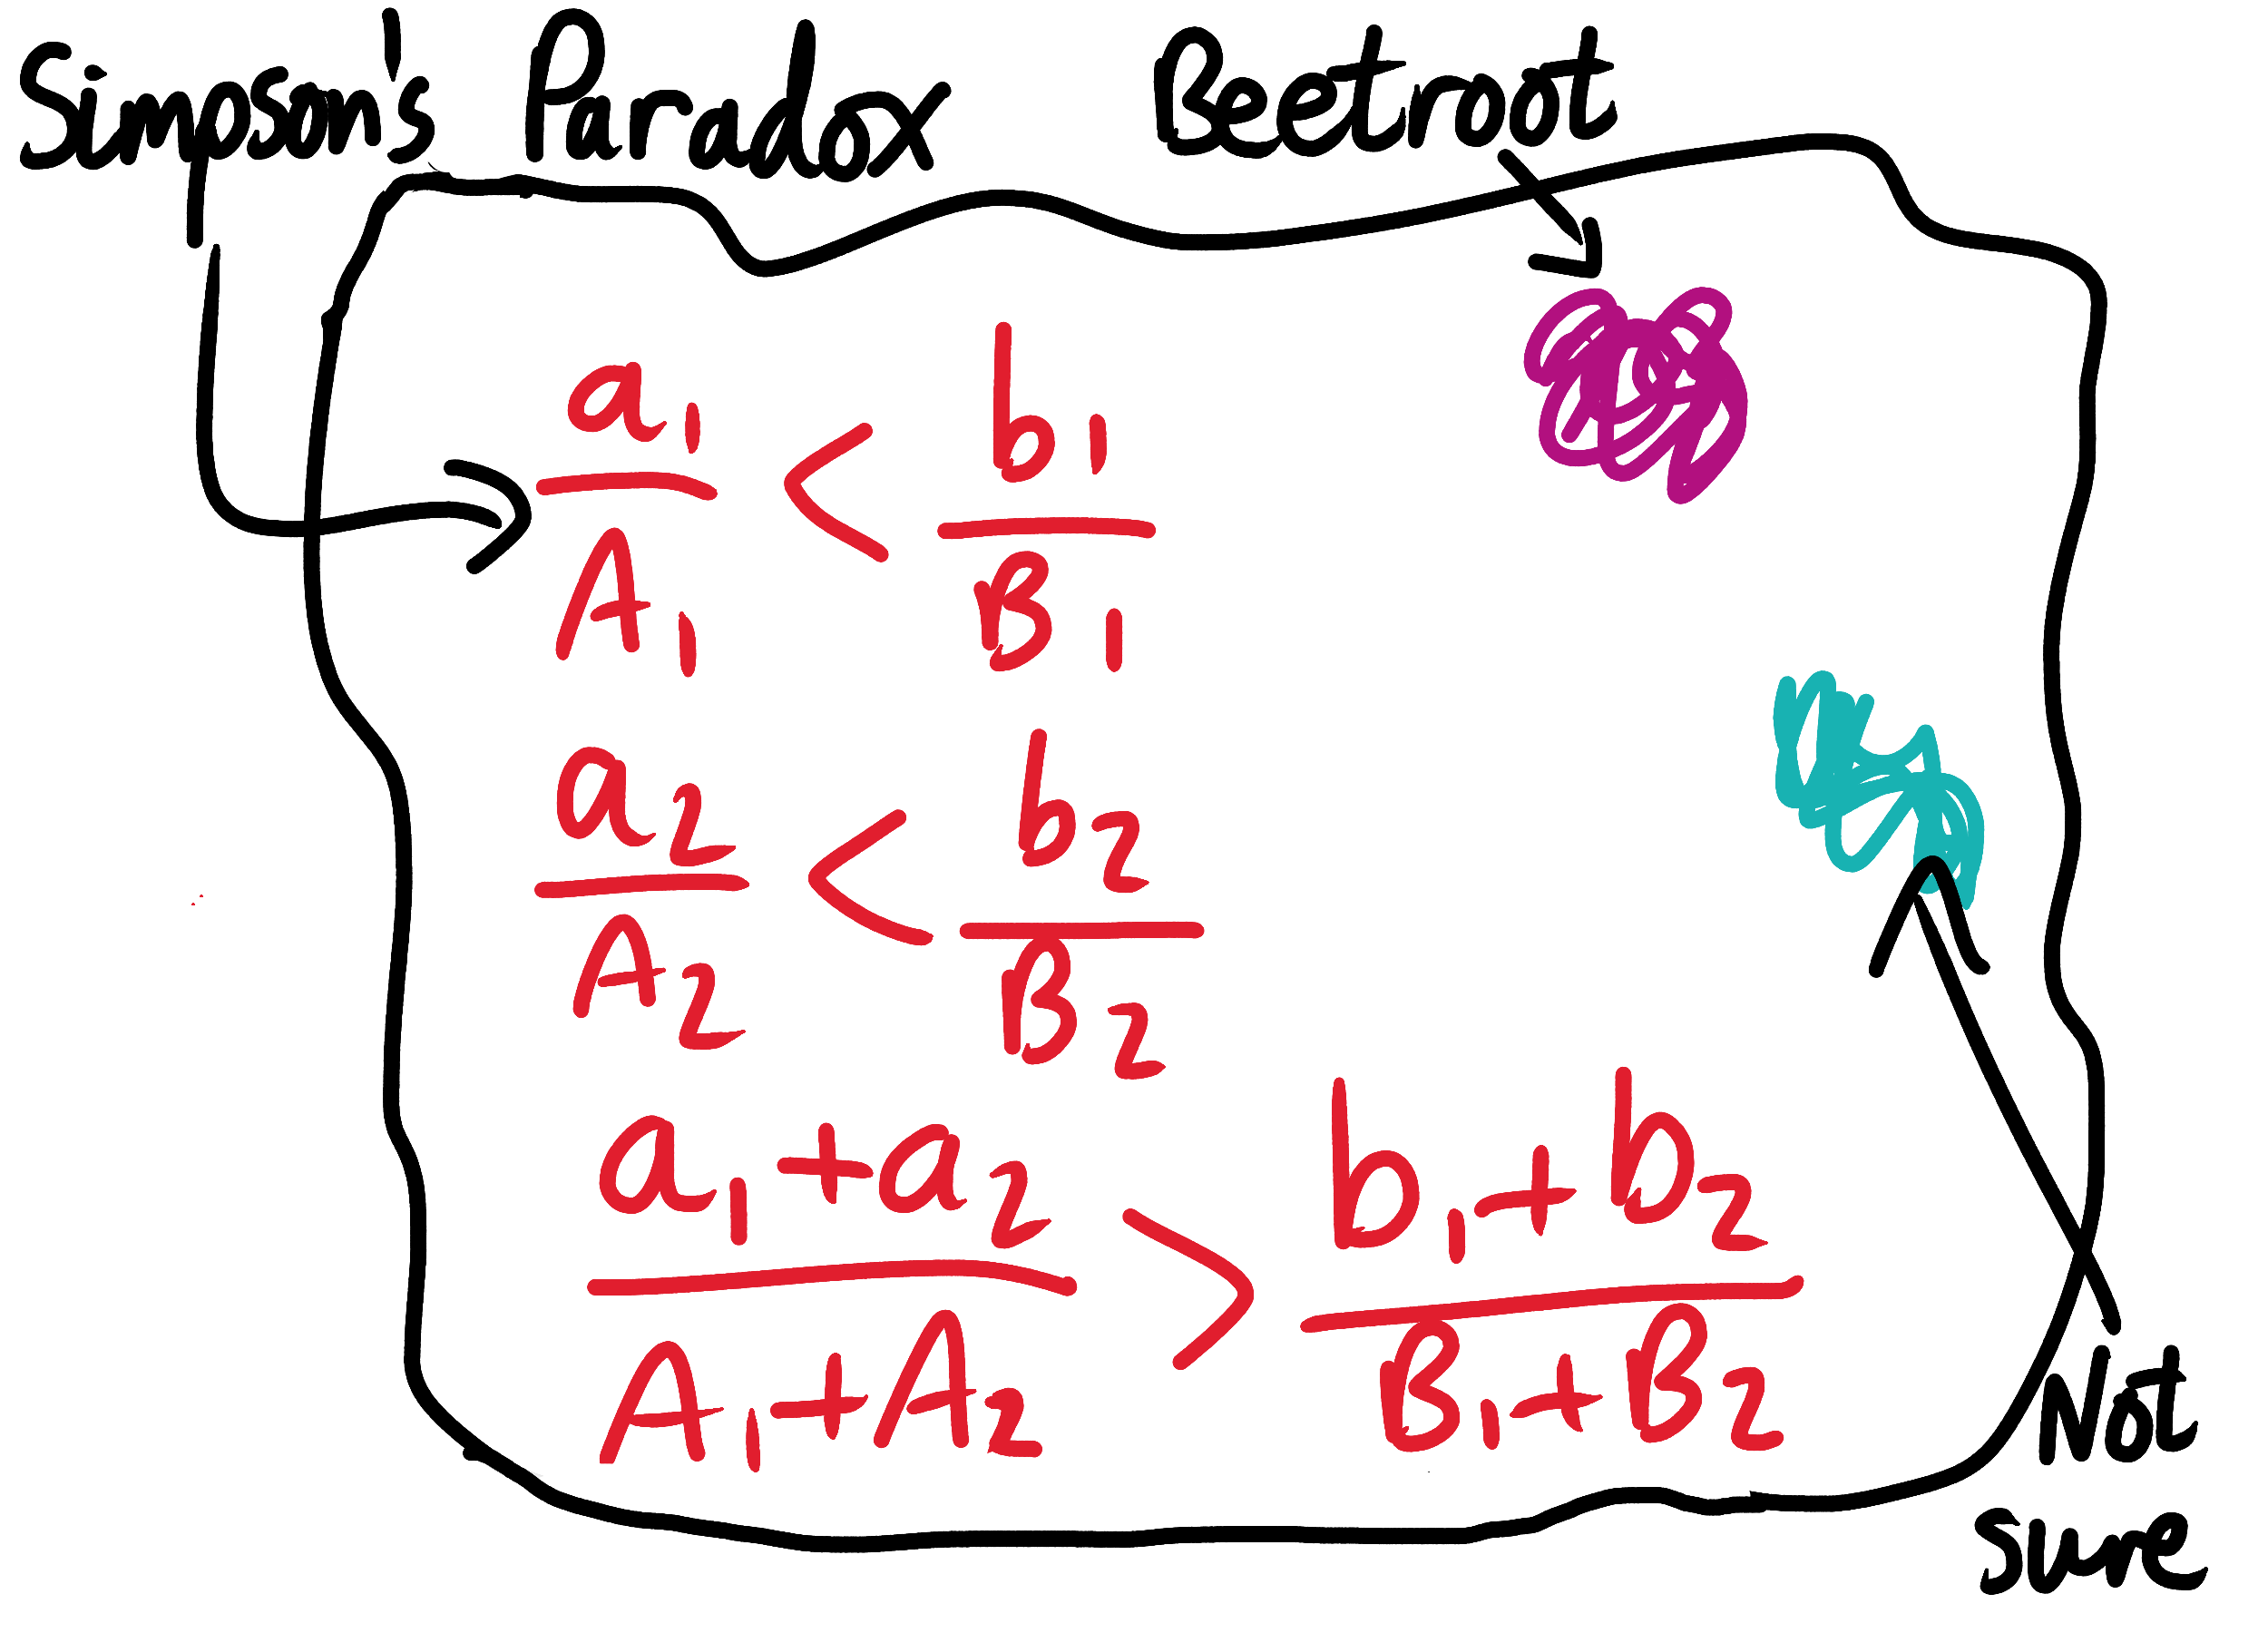 Simpson's Paradox Beetroot
a₁/A₁ < b₁/B₁
a₂/A₂ < b₂/B₂
a₁+a₂/A₁+A₂ > b₁+b₂/B₁+B₂
Not
sure